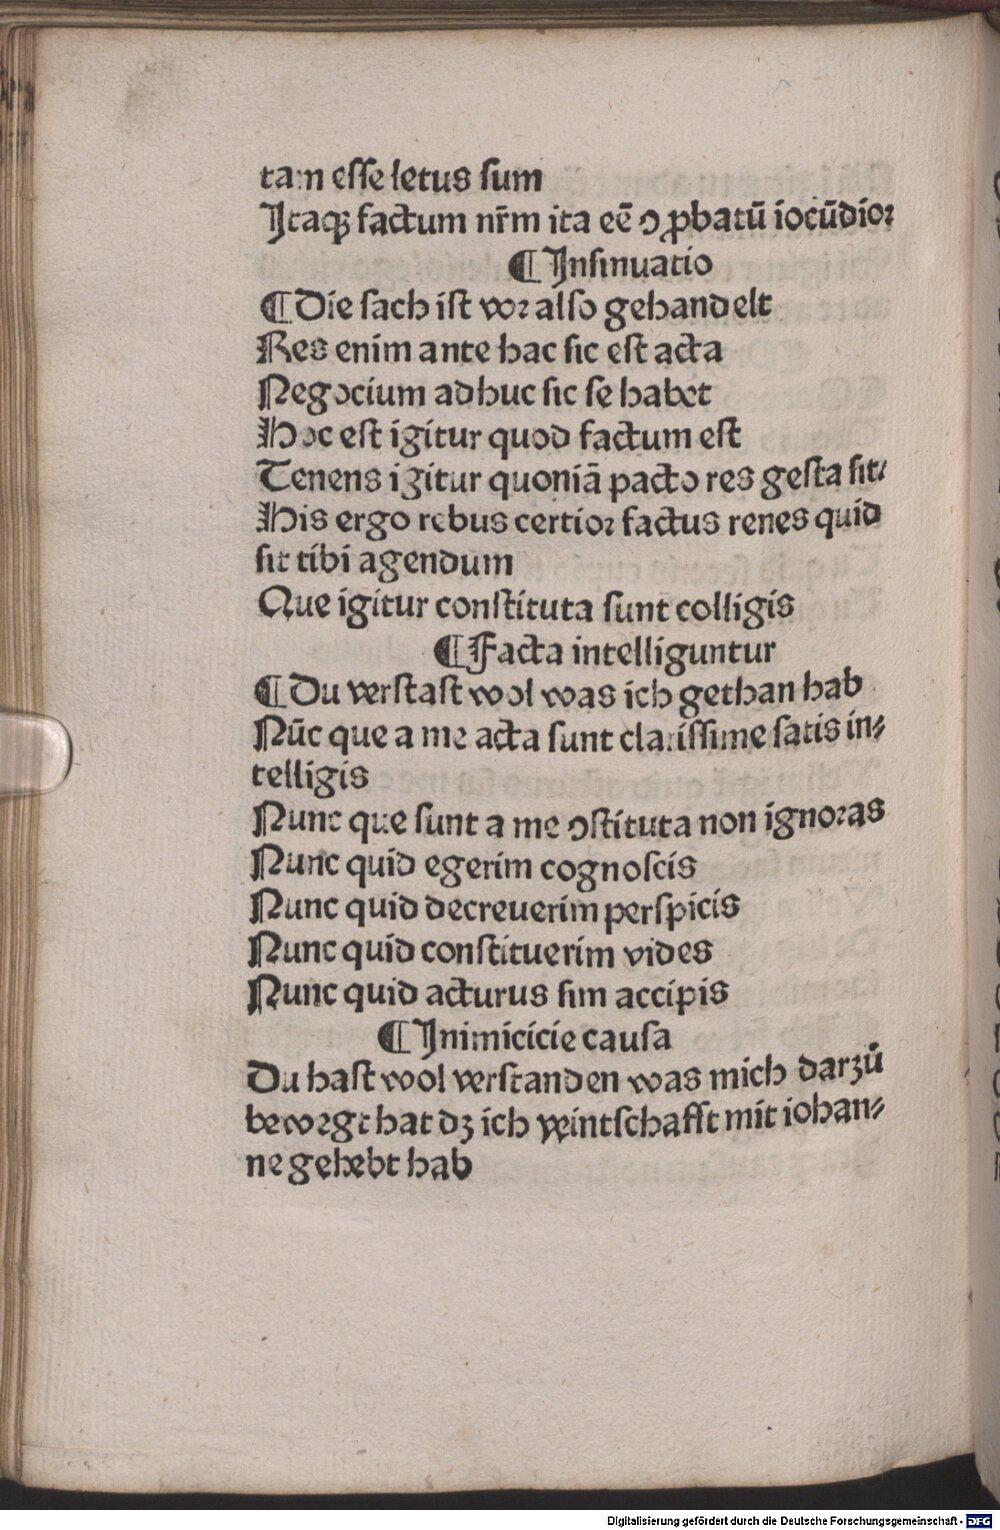 tam esse letus sum
Itaqꝫ factum nr̄m ita eē ꝯꝓbatū iocūdioꝛ
¶ Insinuatio
¶ Die sach ist voꝛ also gehandelt
Res enim ante hac sic est acta
Negocium adhuc sic se habet
Hoc est igitur quod factum est
Tenens igitur quoniā pacto res gesta sit⸗
His ergo rebus certioꝛ factus renes quid
sit tibi agendum
Que igitur constituta sunt colligis
¶ Facta intelliguntur
¶ Du verstast wol was ich gethan hab
Nūc que a me acta sunt clarissime satis in⸗
telligis
Nunc que sunt a me ꝯstituta non ignoꝛas
Nunc quid egerim cognoscis
Nunc quid decreuerim perspicis
Nunc quid constituerim vides
Nunc quid acturus sim accipis
¶ Inimicicie causa
Du hast wol verstanden was mich darzū
bewoꝛgt hat dꝫ ich veintschafft mit iohan⸗
ne gehebt hab
Digitalisierung gefördert durch die Deutsche Forschungsgemeinschaft - DFG